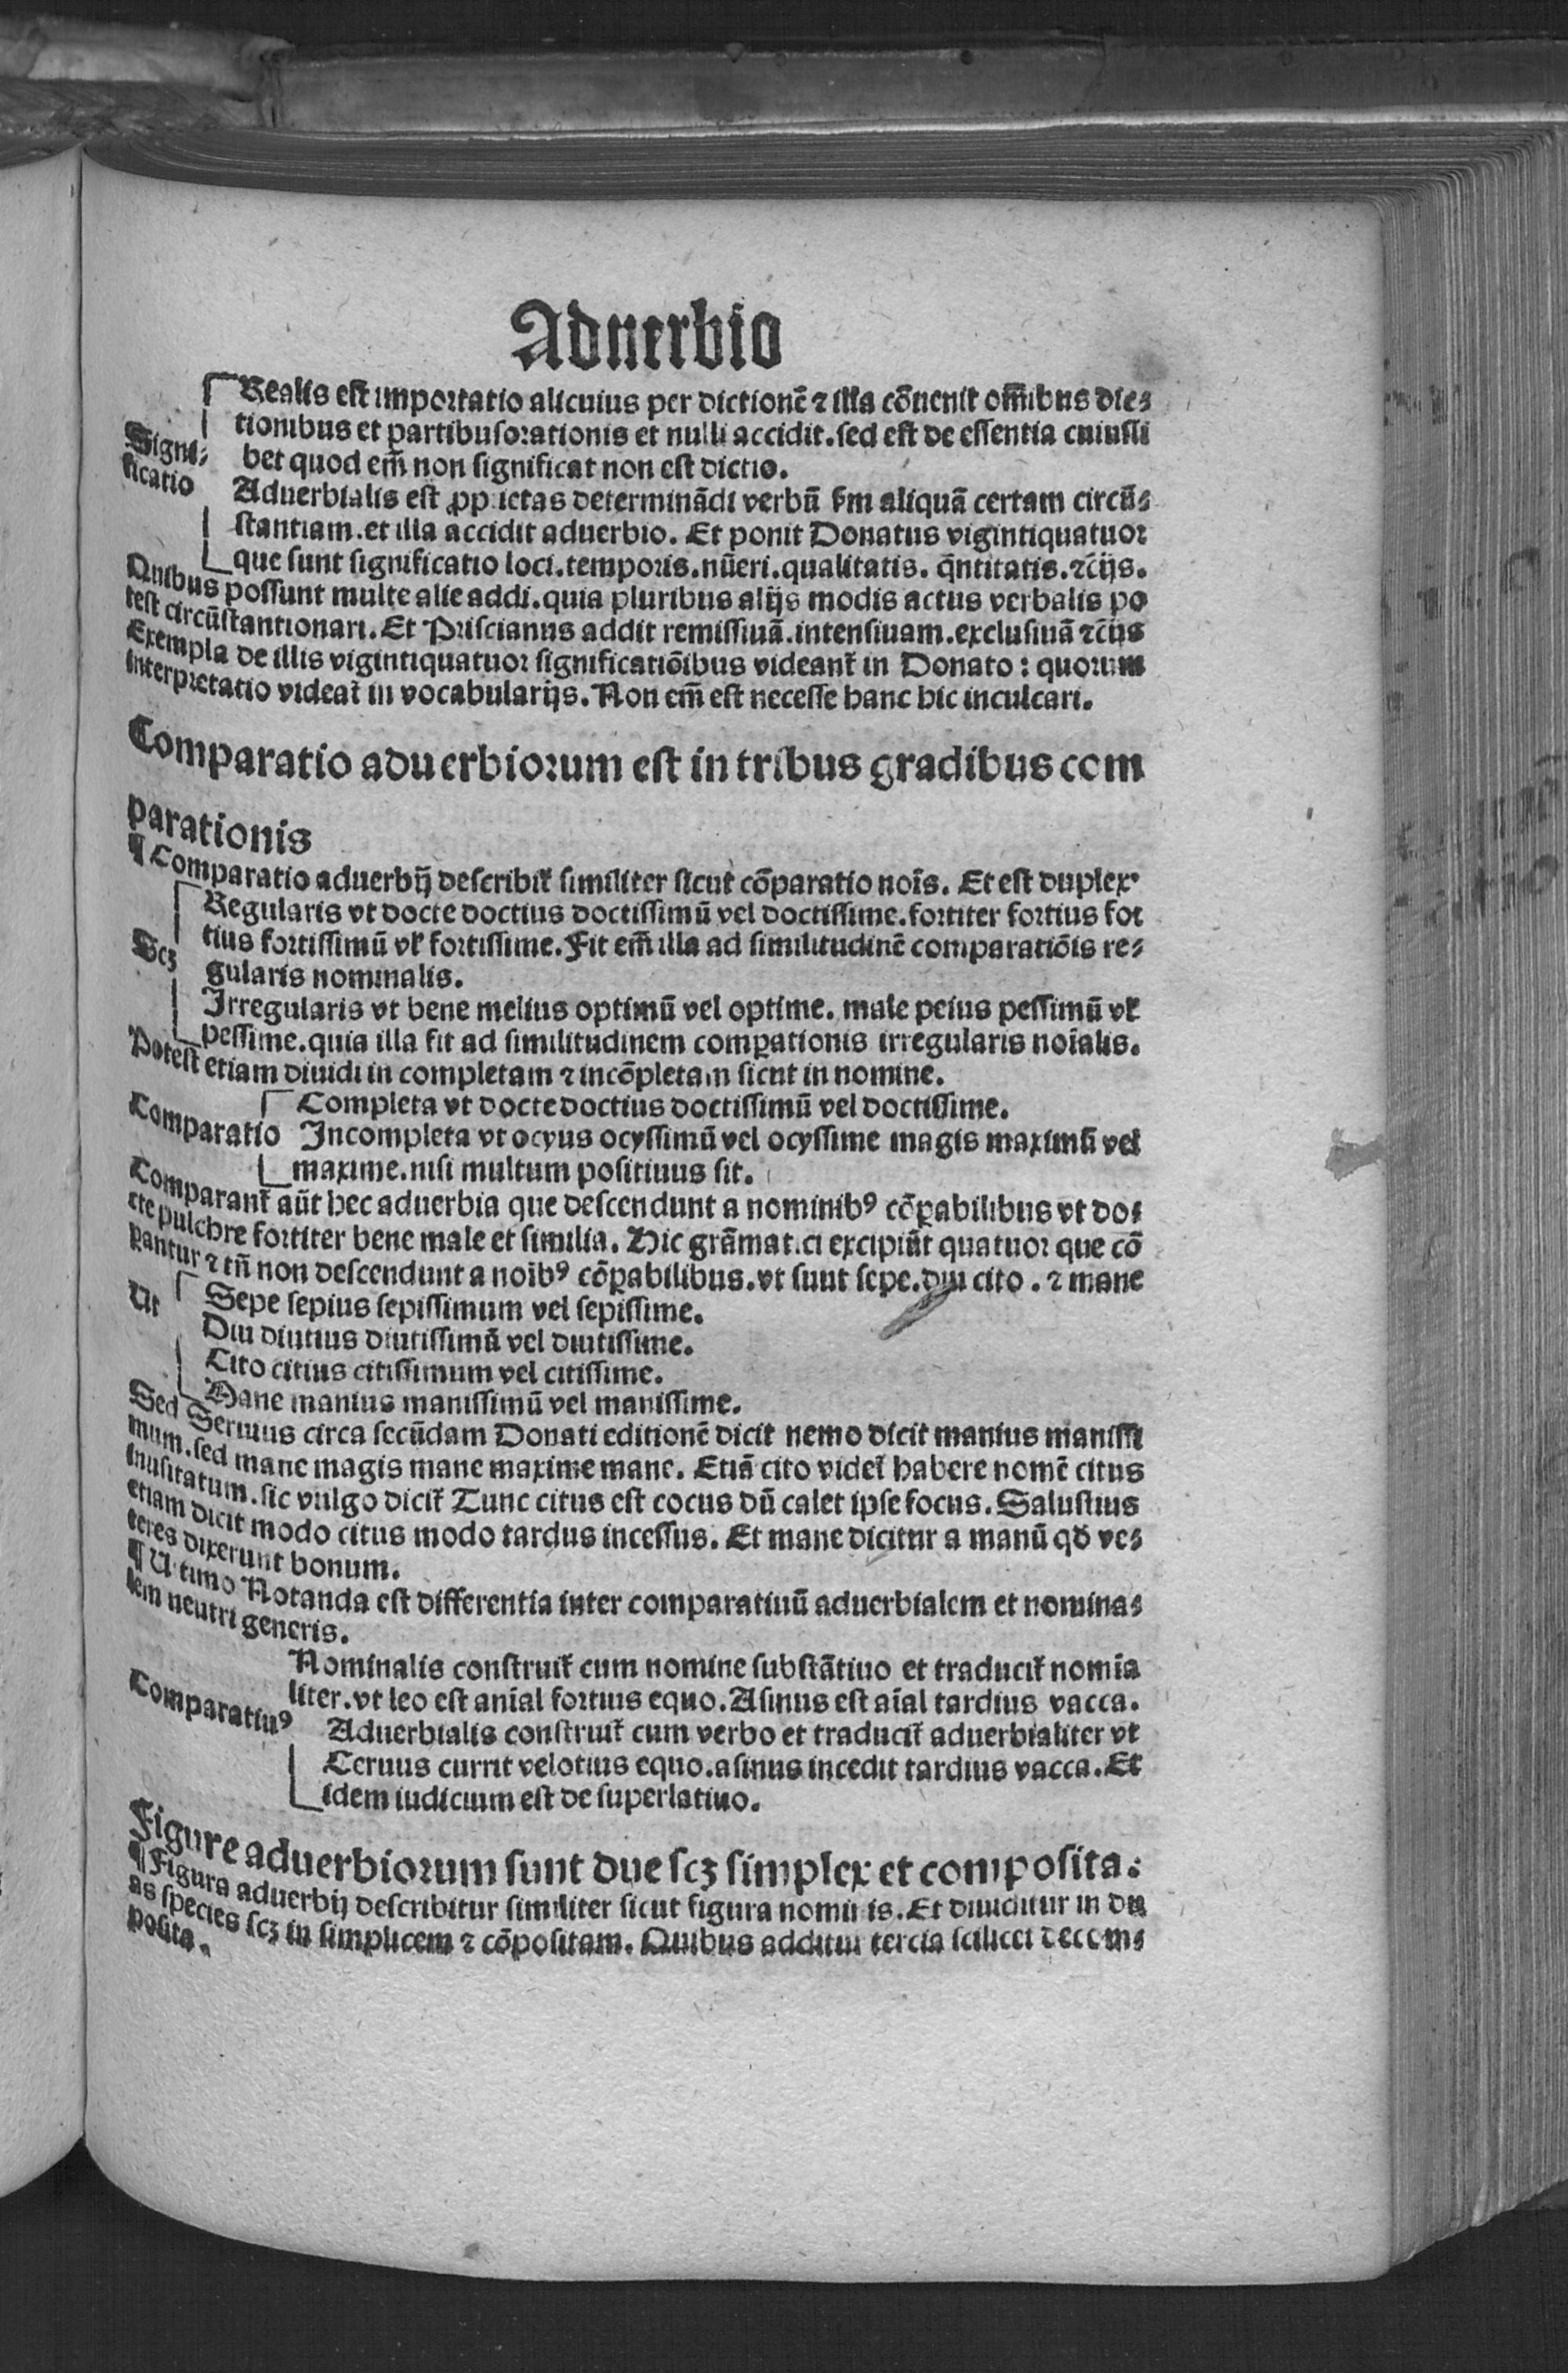 Aduerbio
Realis est importatio alicuius per dictionē ⁊ illa cōuenit om̄ibus dic⸗
tionibus et partibusorationis et nulli accidit. sed est de essentia cuiussi
Signi⸗
ficatio
bet quod em̄ non significat non est dictio.
Aduerbialis est ꝓprietas determinādi verbū ẜm aliquā certam circū⸗
stantiam. et illa accidit aduerbio. Et ponit Donatus vigintiquatuor
que sunt significatio loci. temporis. nūeri. qualitatis. q̄ntitatis. ⁊c̄ijs.
Quibus possunt multe alie addi. quia pluribus alijs modis actus verbalis po
test circūstantionari. Et Priscianus addit remissiuā. intensiuam. exclusiuā ⁊c̄ijs
Exempla de illis vigintiquatuor significatiōibus videant̉ in Donato: quorum
interpretatio videat̉ in vocabularijs. Non em̄ est necesse hanc hic inculcari.
Comparatio aduerbiorum est in tribus gradibus com
parationis
¶ Comparatio aduerbij describit̉ similiter sicut cōparatio nois̄. Et est duplex
Regularis vt docte doctius doctissimū vel doctissime. fortiter fortius for
tius fortissimū vl̉ fortissime. Fit em̄ illa ad similitudinē comparatiōis re⸗
Scꝫ
gularis nominalis.
Irregularis vt bene melius optimū vel optime. male peius pessimū vl̉
pessime. quia illa fit ad similitudinem comꝑationis irregularis noīalis.
Potest etiam diuidi in completam ⁊ incōpletam sicut in nomine.
Completa vt docte doctius doctissimū vel doctissime.
Comparatio Incompleta vt ocyus ocyssimū vel ocyssime magis maximū vel
maxime. nisi multum positiuus sit.
Comparant̉ aūt hec aduerbia que descendunt a nominibꝰ cōꝑabilibus vt do⸗
cte pulchre fortiter bene male et similia. Hic grāmatici excipiūt quatuor que cō
ꝑantur ⁊ tn̄ non descendunt a noībꝰ cōꝑabilibus. vt sunt sepe. diu cito. ⁊ mane
Ut
Sepe sepius sepissimum vel sepissime.
Diu diutius diutissimū vel diutissime.
Cito citius citissimum vel citissime.
Mane manius manissimū vel manissime.
Sed Seruius circa secūdam Donati editionē dicit nemo dicit manius manissi
mum. sed mane magis mane maxime mane. Etiā cito videt̉ habere nomē citus
inusitatum. sic vulgo dicit̉ Tunc citus est cocus dū calet ipse focus. Salustius
etiam dicit modo citus modo tardus incessus. Et mane dicitur a manū qd̄ ve⸗
teres dixerunt bonum.
¶ Ultimo Notanda est differentia inter comparatiuū aduerbialem et nomina⸗
lem neutri generis.
Nominalis construit̉ cum nomine substātiuo et traducit̉ nomīa
liter. vt leo est anīal fortius equo. Asinus est aīal tardius vacca.
Comparatiuꝰ
Aduerbialis construit̉ cum verbo et traducit̉ aduerbialiter vt
Ceruus currit velotius equo. asinus incedit tardius vacca. Et
idem iudicium est de superlatiuo.
Figure aduerbiorum sunt due scꝫ simplex et composita.
¶ Figura aduerbij describitur similiter sicut figura nominis. Et diuiditur in du
as species scꝫ in simplicem ⁊ cōpositam. Quibus additur tercia scilicet decom⸗
posita.